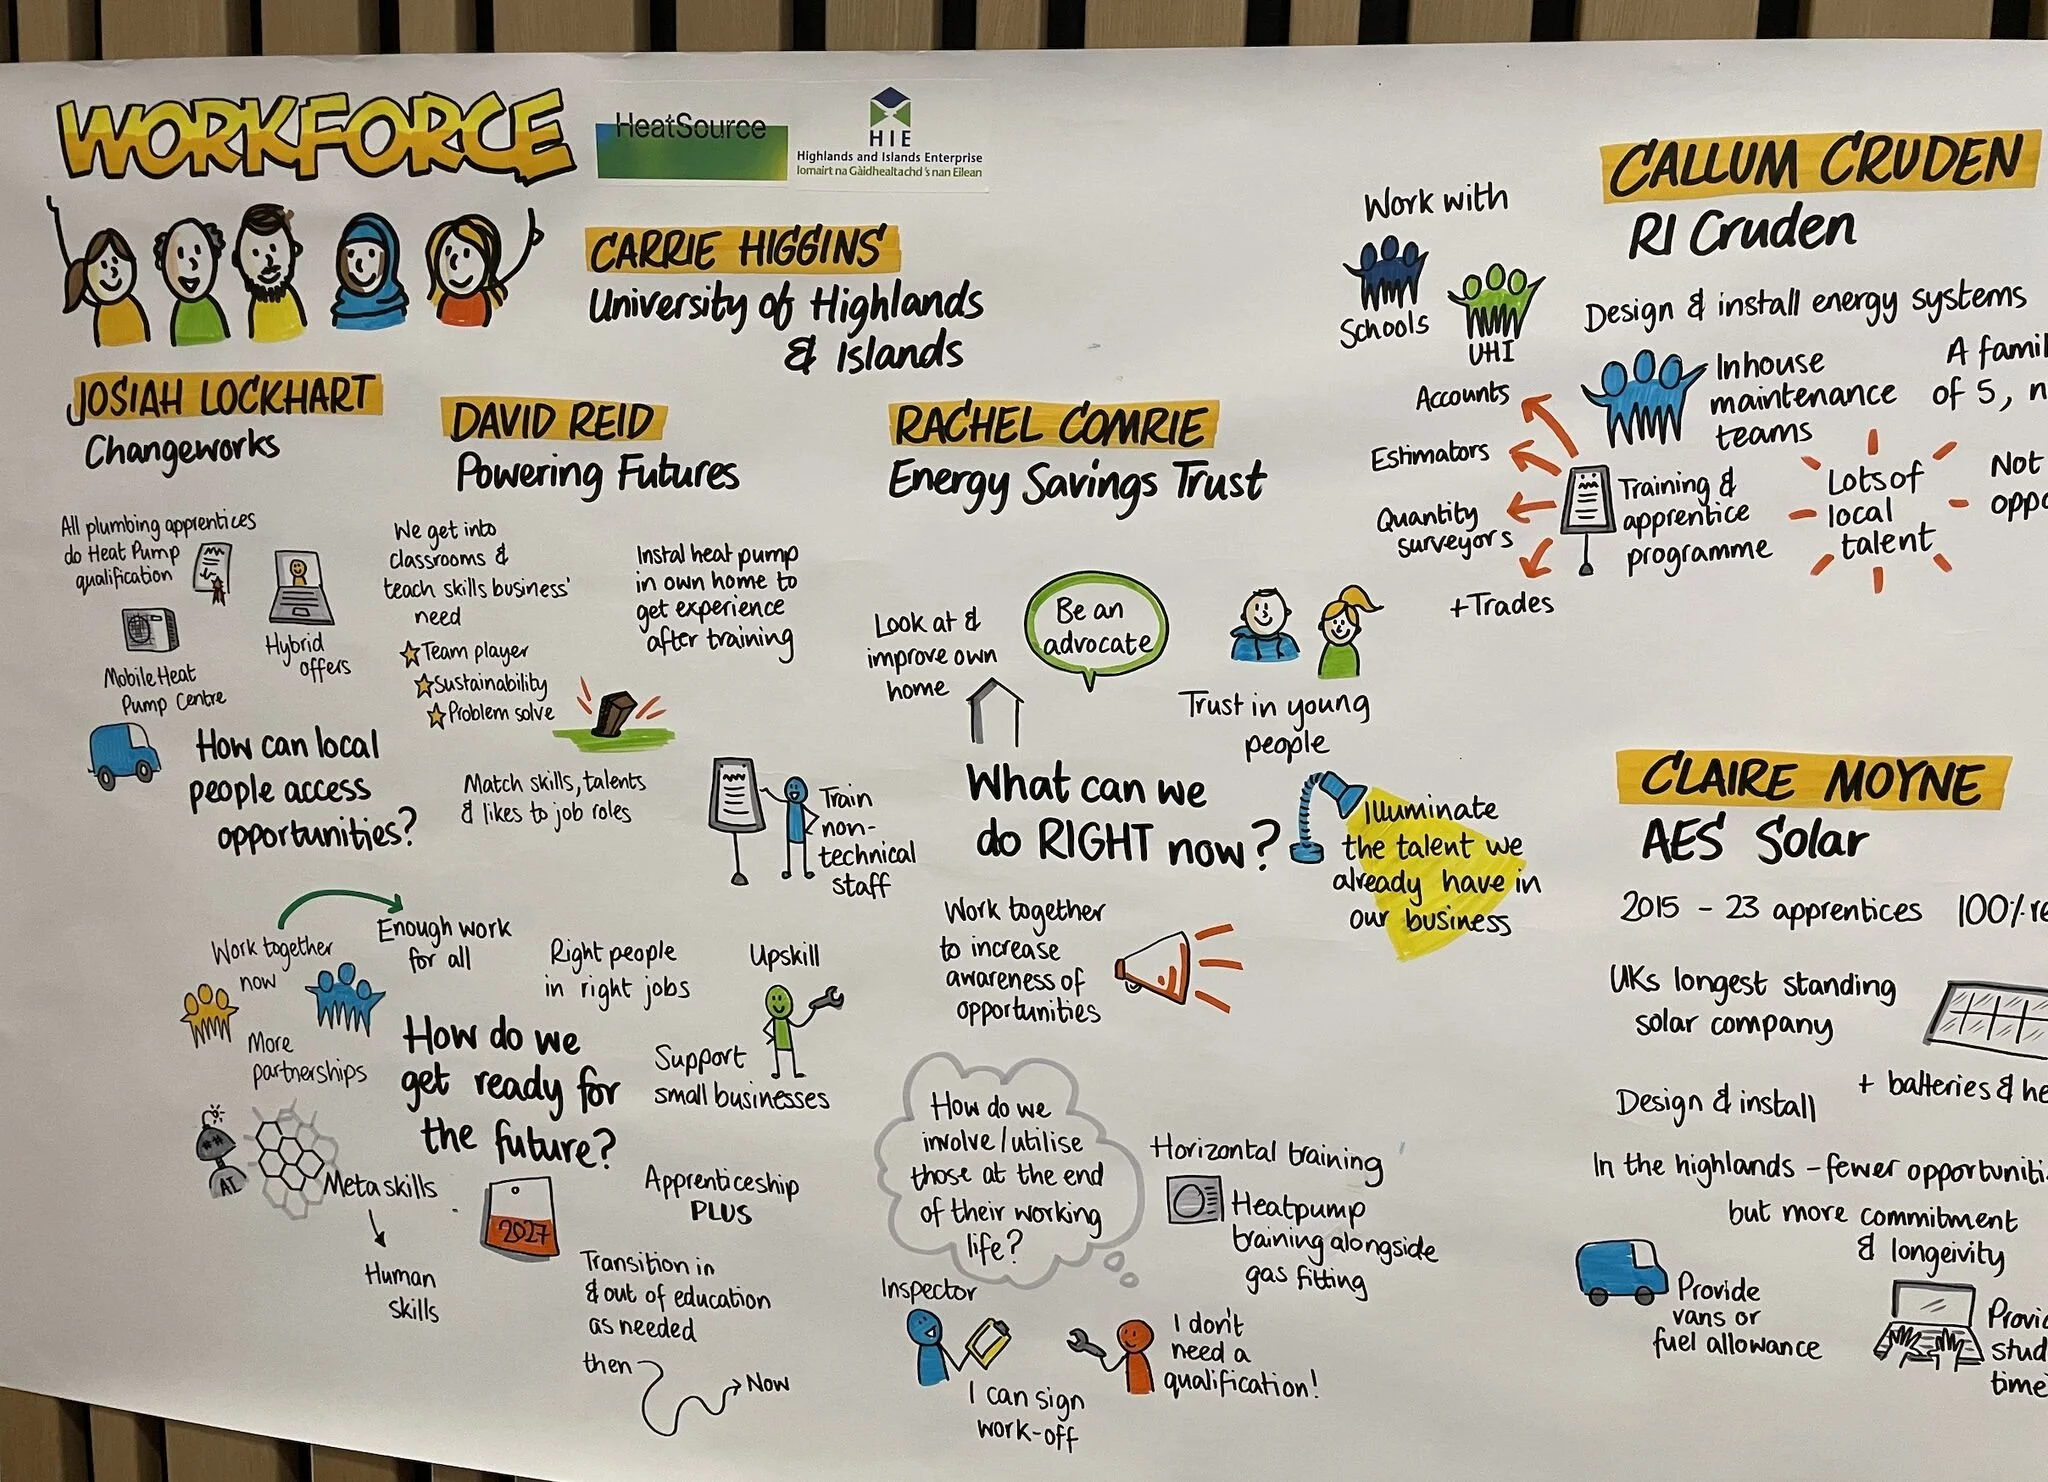 WORKFORCE
HeatSource
HIE
Highlands and Islands Enterprise
Iomairt na Gàidhealtachd 's nan Eilean
CARRIE HIGGINS
University of Highlands
& Islands
JOSIAH LOCKHART
Changeworks
DAVID REID
Powering Futures
RACHEL COMRIE
Energy Savings Trust
All plumbing apprentices
do Heat Pump
qualification
Hybrid
offers
Mobile Heat
Pump Centre
We get into
classrooms &
teach skills business'
need
Team player
Sustainability
Problem solve
Instal heat pump
in own home to
get experience
after training
How can local
people access
opportunities?
Match skills, talents
& likes to job roles
Train
non-
technical
staff
Look at &
improve own
home
Be an
advocate
Trust in young
people
What can we
do RIGHT now?
Illuminate
the talent we
already have in
our business
Work together
to increase
awareness of
opportunities
Work together
now
Enough work
for all
More
partnerships
Right people
in right jobs
Upskill
Support
small businesses
How do we
get ready for
the future?
AI
Meta skills
Human
skills
2027
Apprenticeship
PLUS
Transition in
& out of education
as needed
then
Now
How do we
involve/utilise
those at the end
of their working
life?
Horizontal training
Heatpump
training alongside
gas fitting
Inspector
I can sign
work-off
I don't
need a
qualification!
CALLUM CRUDEN
RI Cruden
Work with
Schools
UHI
Design & install energy systems
Inhouse
maintenance
teams
A famil
of 5, n
Accounts
Estimators
Quantity
surveyors
+ Trades
Training &
apprentice
programme
Lots of
local
talent
Not
oppo
CLAIRE MOYNE
AES Solar
2015 - 23 apprentices 100% re
UKs longest standing
solar company
Design & install
+ batteries & he
In the highlands - fewer opportuniti
but more commitment
& longeivity
Provide
vans or
fuel allowance
Provi
stud
time